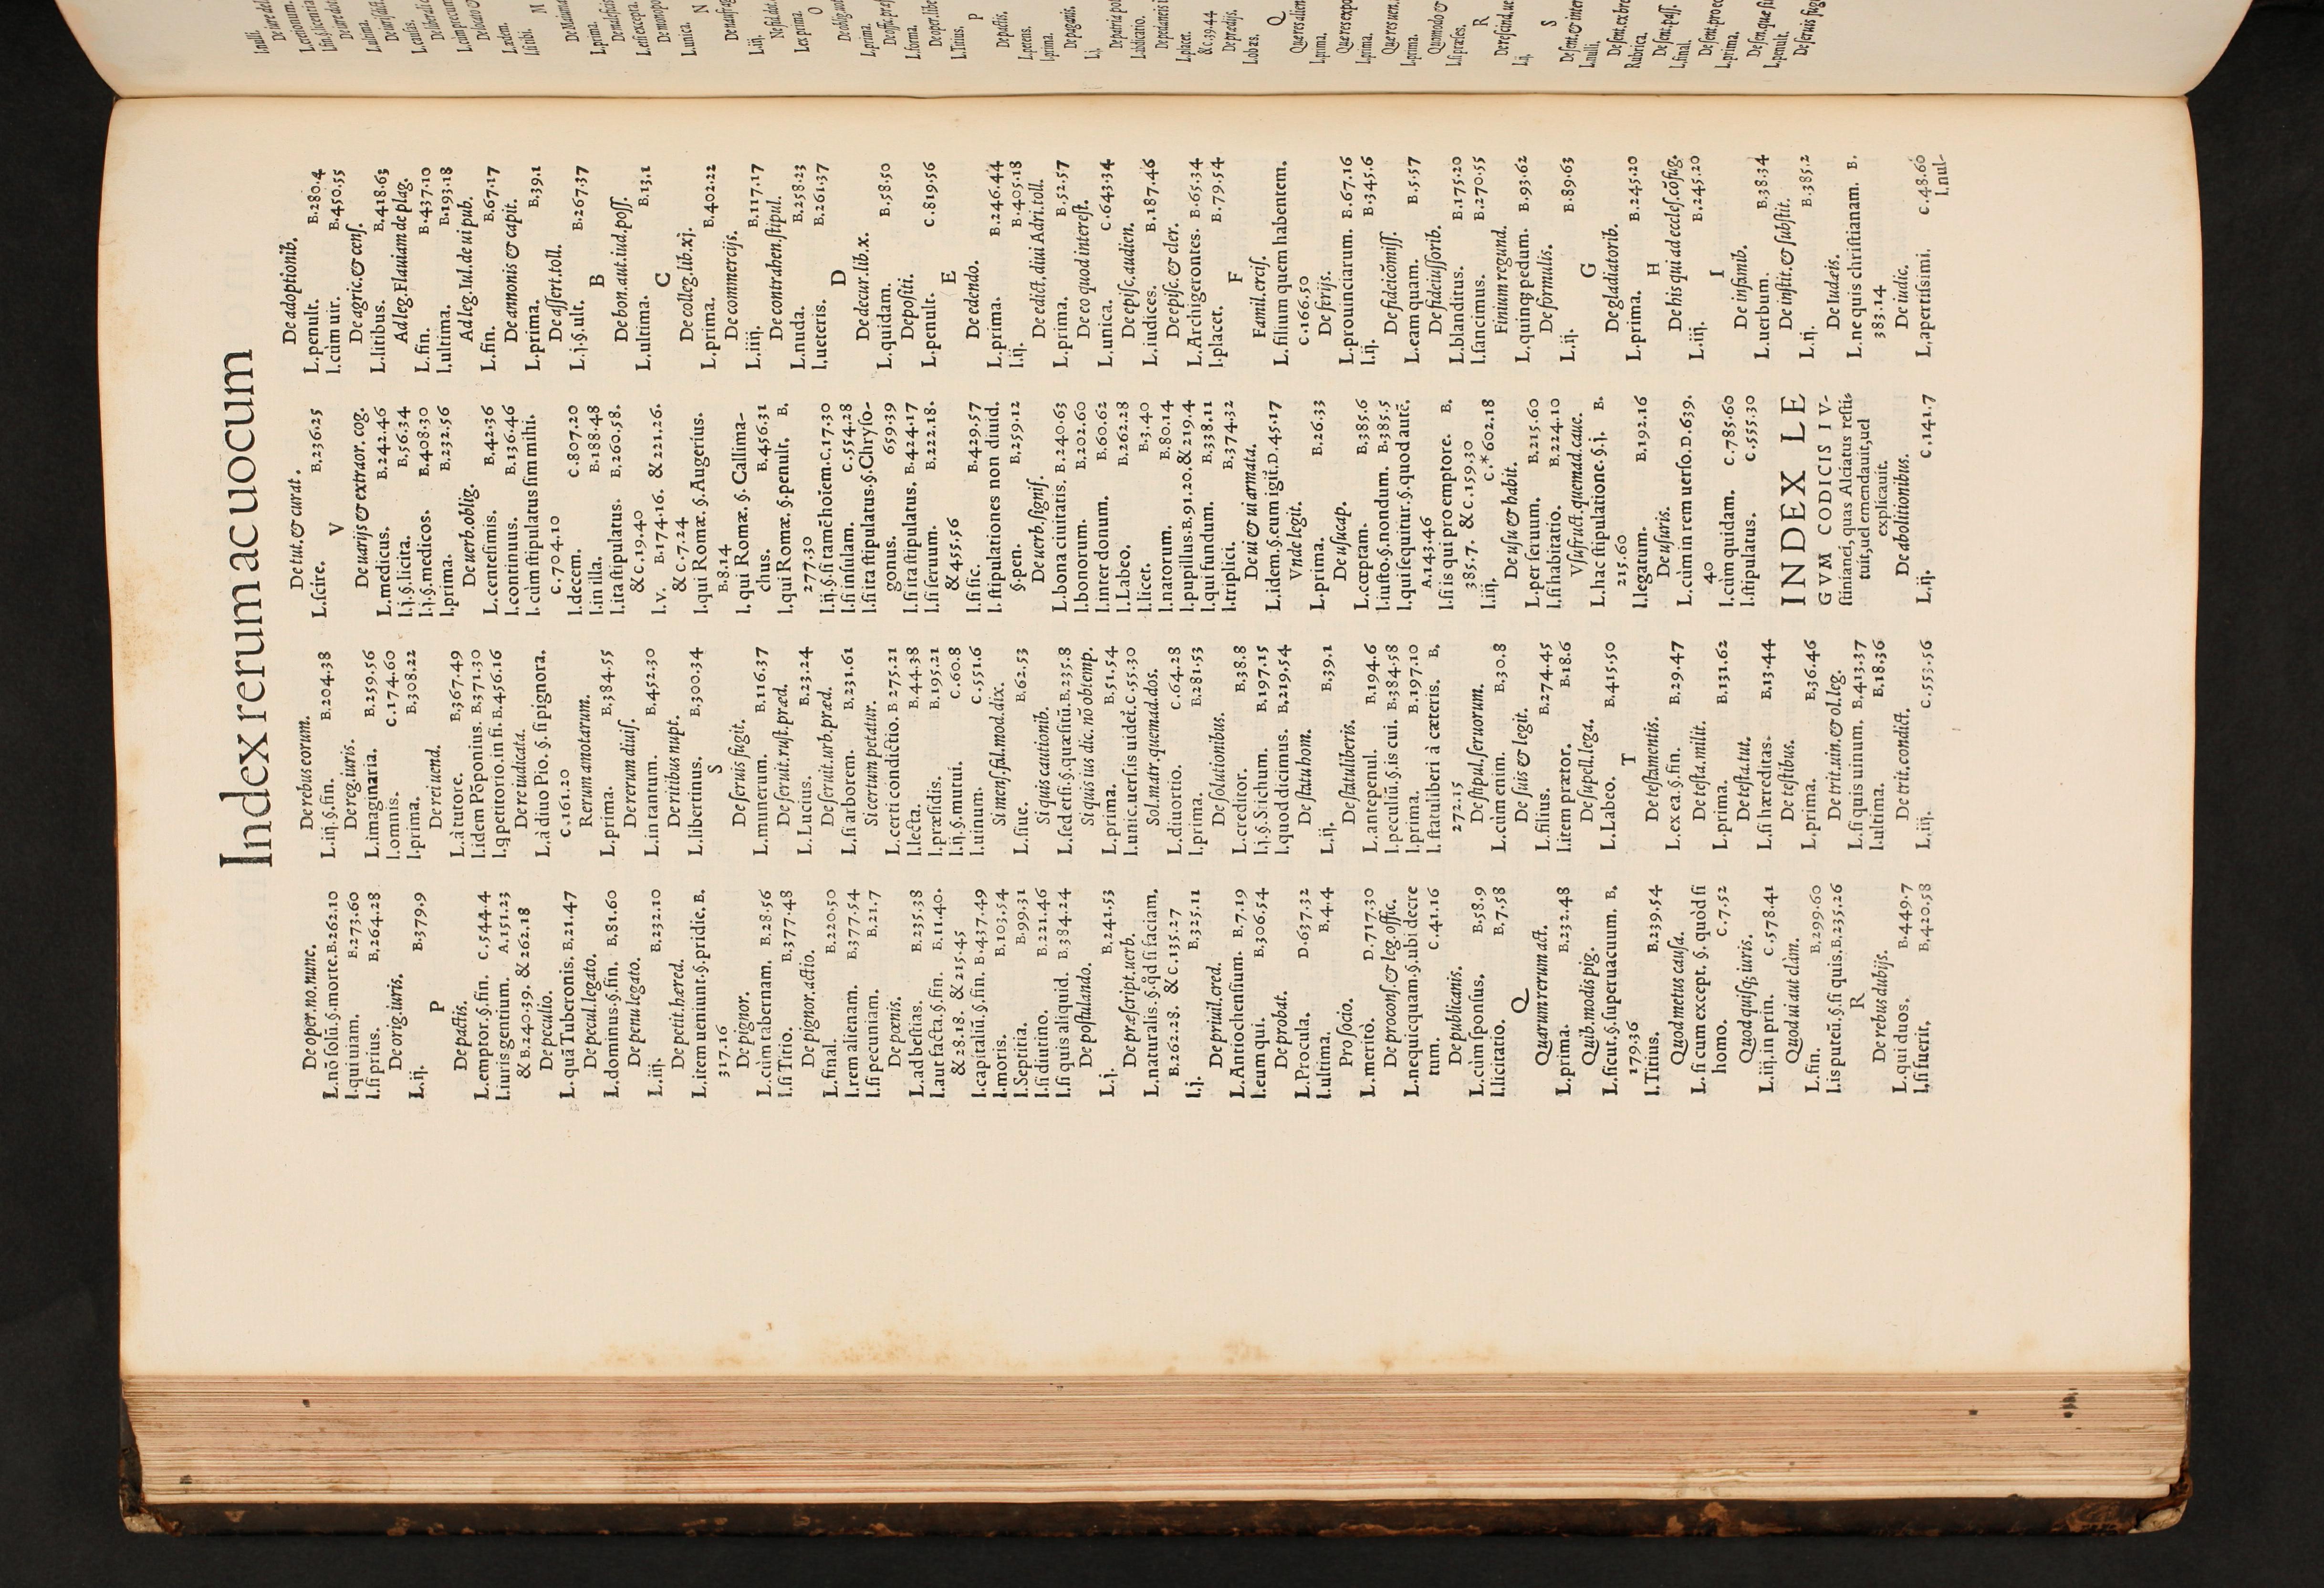 Index rerum ac uocum
De oper.no.nunc.
L.nõ ſolũ.§.morte.B.262.10
l.qui uiam. B.273.60
l.ſi prius. B.264.28
De orig.iuris.
L.ij. B.379.9
P
De pactis.
L.emptor.§.fin. C.544.4
l.iuris gentium. A.151.23
& B.240.39. & 262.18
De peculio.
L.quã Tuberonis. B.21.47
De pecul.legato.
L.dominus.§.fin. B.81.60
De penu legato.
L.iij. B.232.10
De petit.hæred.
L.item ueniunt.§.pridie. B.
317.16
De pignor.
L.cùm tabernam. B.28.56
l.ſi Titio. B.377.48
De pignor.actio.
L.final. B.220.50
l.rem alienam. B.377.54
l.ſi pecuniam. B.21.7
De pœnis.
L.ad beſtias. B.235.38
l.aut facta.§.fin. B.11.40.
& 28.18. & 215.45
l.capitaliũ.§.fin. B.437.49
l.moris. B.103.54
l.Septitia. B.99.31
l.ſi diutino. B.221.46
l.ſi quis aliquid. B.384.24
De poſtulando.
L.j. B.241.53
De præſcript.uerb.
L.naturalis.§.q̃d ſi faciam.
B.262.28. & C.135.27
l.j. B.325.11
De priuil.cred.
L.Antiochenſium. B.7.19
l.eum qui. B.306.54
De probat.
L.Procula. D.637.32
l.ultima. B.4.4
Pro ſocio.
L.meritò. D.717.30
De proconſ.& leg.offic.
L.nequicquam.§.ubi decre
tum. C.41.16
De publicanis.
L.cùm ſponſus. B.58.9
l.licitatio. B.7.58
Q
Quarum rerum act.
L.prima. B.232.48
Quib.modis pig.
L.ſicut.§.ſuperuacuum. B.
179.36
l.Titius. B.239.54
Quod metus cauſa.
L.ſi cum except.§.quòd ſi
homo. C.7.52
Quod quiſq; iuris.
L.iij.in prin. C.578.41
Quod ui aut clàm.
L.fin. B.299.60
l.is puteũ.§.ſi quis.B.235.26
R
De rebus dubijs.
L.qui duos. B.449.7
l.ſi fuerit. B.420.58
De rebus eorum.
L.iij.§.fin. B.204.38
De reg.iuris.
L.imaginaria. B.259.56
l.omnis. C.174.60
l prima. B.308.22
De rei uend.
L.à tutore. B.367.49
l.idem Põponius. B.371.30
l.q petitorio.in fi. B.456.16
De re iudicata.
L.à diuo Pio.§.ſi pignora.
C.161.20
Rerum amotarum.
L.prima. B.384.55
De rerum diuiſ.
L.in tantum. B.452.30
De ritibus nupt.
L.libertinus. B.300.34
S
De ſeruis fugit.
L.munerum. B.116.37
De ſeruit.ruſt.præd.
L.Lucius. B.23.24
De ſeruit.urb.præd.
L.ſi arborem. B.231.61
Si certum petatur.
L.certi condictio. B 275.21
l.lecta. B.44.38
l.præſidis. B.195.21
l.iij.§.mutui. C.60.8
l.uinum. C.551.6
Si menſ.fal.mod.dix.
L.ſiue. B.62.53
Si quis cautionib.
L.ſed etſi.§.quæſitũ.B.235.8
Si quis ius dic. nõ obtemp.
L.prima. B.51.54
l.unic.uerſ.is uidet.C.55.30
Sol.matr.quemad.dos.
L.diuortio. C.64.28
l.prima. B.281.53
De ſolutionibus.
L.creditor. B.38.8
l.ij.§.Stichum. B.197.15
l.quod dicimus. B.219.54
De ſtatu hom.
L.ij. B.39.1
De ſtatuliberis.
L.antepenul. B.194.6
l.peculiũ.§.is cui. B.384.58
l.prima. B.197.10
l.ſtatuliberi à cæteris. B.
272.15
De ſtipul.ſeruorum.
L.cùm enim. B.30.8
De ſuis & legit.
L.filius. B.274.45
l.item prætor. B.18.6
De ſupell.lega.
L.Labeo. B.415.50
T
De teſtamentis.
L.ex ea.§.fin. B.29.47
De teſta.milit.
L.prima. B.131.62
De teſta.tut.
L.ſi hæreditas. B.13.44
De teſtibus.
L.prima. B.36.46
De trit.uin.& ol.leg.
L.ſi quis uinum. B.413.37
l.ultima. B.18.36
De trit.condict.
L.iij. C.553.56
De tut.& curat.
L.ſcire. B.236.25
V
De uarijs & extraor. cog.
L.medicus. B.242.46
l.j.§.licita. B.56.34
l.j.§.medicos. B.408.30
l.prima. B.232.56
De uerb.oblig.
L.centeſimis. B.42.36
l.continuus. B.136.46
l.cùm ſtipulatus ſim mihi.
C.704.10
l.decem. C.807.20
l.in illa. B.188.48
l.ita ſtipulatus. B.260.58.
& C.19.40
l.v. B.174.16. & 221.26.
& C.7.24
l.qui Romæ.§.Augerius.
B.8.14
l.qui Romæ.§.Callima-
chus. B.456.31
l.qui Romæ.§.penult. B.
277.30
l.ij.§.ſi tamẽ hoiem.C.17.30
l.ſi inſulam. C.554.28
l.ſi ita ſtipulatus.§.Chryſo-
gonus. 659.39
l.ſi ita ſtipulatus. B.424.17
l.ſi ſeruum. B.222.18.
& 455.56
l.ſi ſic. B.429.57
l.ſtipulationes non diuid.
§.pen. B.259.12
De uerb.ſignif.
L.bona ciuitatis. B.240.63
l.bonorum. B.202.60
l.inter donum. B.60.62
l.Labeo. B.262.28
l.licet. B.3.40
l.natorum. B.80.14
l.pupillus.B.91.20.& 219.4
l.qui fundum. B.338.11
l.triplici. B.374.32
De ui & ui armata.
L.idem.§.cum igit̃.D.45.17
Vnde legit.
L.prima. B.26.33
De uſucap.
L.cœptam. B.385.6
l.iuſto.§.nondum. B.385.5
l.qui ſequitur.§.quod autẽ.
A.143.46
l.ſi is qui pro emptore. B.
385.7. & C.159.30
l.iij. C.*602.18
De uſu & habit.
L.per ſeruum. B.215.60
l.ſi habitatio. B.224.10
Vſufruct.quemad.cauc.
L.hac ſtipulatione.§.j. B.
215.60
l.legatum. B.192.16
De uſuris.
L.cùm in rem uerſo.D.639.
40
l.cùm quidam. C.785.60
l.ſtipulatus. C.555.30
INDEX LE
GVM CODICIS IV-
ſtinianei, quas Alciatus reſti-
tuit, uel emendauit, uel
explicauit.
De abolitionibus.
L.ij. C.141.7
De adoptionib.
L.penult. B.280.4
l.cùm uir. B.450.55
De agric.& cenſ.
L.litibus. B.418.63
Ad leg.Flauiam de plag.
L.fin. B.437.10
l.ultima. B.193.18
Ad leg.Iul.de ui pub.
L.fin. B.67.17
De annonis & capit.
L.prima. B.39.1
De aſſert.toll.
L.j.§.ult. B.267.37
B
De bon.aut.iud.poſſ.
L.ultima. B.13.1
C
De colleg.lib.xj.
L.prima. B.402.22
De commercijs.
L.iiij. B.117.17
De contrahen.ſtipul.
L.nuda. B.258.23
l.ueteris. B.261.37
D
De decur.lib.x.
L.quidam. B.58.50
Depoſiti.
L.penult. C.819.56
E
De edendo.
L.prima. B.246.44
l.ij. B.405.18
De edict.diui Adri.toll.
L.prima. B.52.57
De eo quod intereſt.
L.unica. C.643.34
De epiſc.audien.
L.iudices. B.187.46
De epiſc.& cler.
L.Archigerontes. B.65.34
l.placet. B.79.54
F
Famil.erciſ.
L.filium quem habentem.
C.166.50
De ferijs.
L.prouinciarum. B.67.16
l.ij. B.345.6
De fideicõmiſſ.
L.eam quam. B.5.57
De fideiuſſorib.
L.blanditus. B.175.20
l.ſancimus. B.270.55
Finium regund.
L.quinq; pedum. B.93.62
De formulis.
L.ij. B.89.63
G
De gladiatorib.
L.prima. B.245.20
H
De his qui ad eccleſ.cõfug.
L.iij. B.245.20
I
De infamib.
L.uerbum. B.38.34
De inſtit.& ſubſtit.
L.ij. B.385.2
De Iudæis.
L.ne quis chriſtianam. B.
383.14
De iudic.
L.apertiſsimi. C.48.60
l.nul-